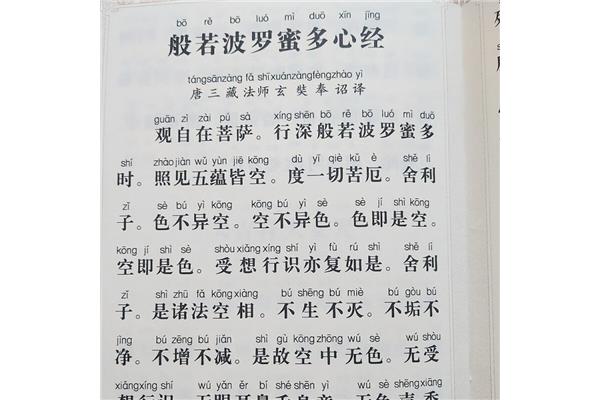 bō rě bō luó mì duō xīn jīng
般若波罗蜜多心经
tángsānzàng fǎ shīxuánzàngfèngzhào yì
唐三藏法师玄奘奉诏译
guān zì zài pú sà xíng shēn bō rě bō luó mì duō
观自在菩萨。行深般若波罗蜜多
shí zhào jiàn wǔ yùn jiē kōng dù yī qiè kǔ è shě lì
时。照见五蕴皆空。度一切苦厄。舍利
zǐ sè bú yì kōng kōng bú yì sè sè jí shì kōng
子。色不异空。空不异色。色即是空。
kōng jí shì sè shòu xiǎng xíng shí yì fù rú shì shě lì
空即是色。受想行识亦复如是。舍利
zǐ shì zhū fǎ kōng xiàng bú shēng bú miè bú gòu bú
子。是诸法空相。不生不灭。不垢不
jìng bú zēng bú jiǎn shì gù kōng zhōng wú sè wú shòu
净。不增不减。是故空中无色。无受
xiǎng xíng shí wú yǎn ěr bí shé shēn yì wú sè shēng xiāng
想行识。无眼耳鼻舌身意。无色声香